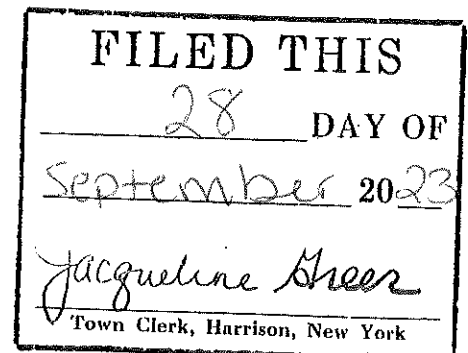 FILED THIS
28 DAY OF
September 2023
Jacqueline Greer
Town Clerk, Harrison, New York